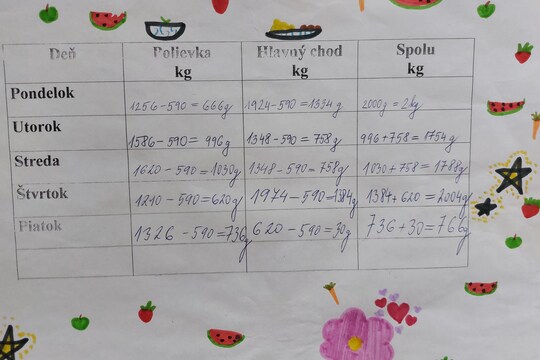 Deň Polievka kg Hlavný chod kg Spolu kg
Pondelok 1256-590=666g 1924-590=1334g 2000g=2kg
Utorok 1586-590=996g 1348-590=758g 996+758=1754g
Streda 1620-590=1030g 1348-590=758g 1030+758=1788g
Štvrtok 1210-590=620g 1974-590=1384g 1384+620=2004g
Piatok 1326-590=736g 620-590=30g 736+30=766g